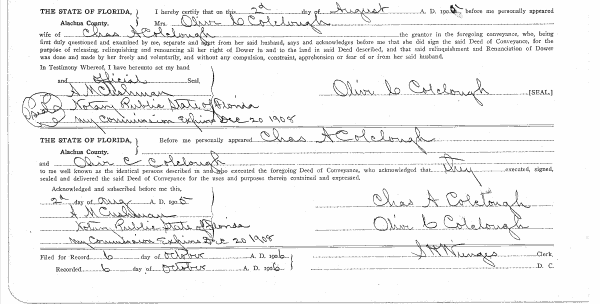 THE STATE OF FLORIDA, I hereby certify that on this 2d day of August A. D. 1905 before me personally appeared
Alachua County. Mrs. Olive C Colclough
wife of Chas A Colclough the grantor in the foregoing conveyance, who, being
first duly questioned and examined by me, separate and apart from her said husband, says and acknowledges before me that she did sign the said Deed of Conveyance, for the
purpose of releasing, relinquishing and renouncing all her right of Dower in and to the land in said Deed described, and that said relinquishment and Renunciation of Dower
was done and made by her freely and voluntarily, and without any compulsion, constraint, apprehension or fear of or from her said husband.
In Testimony Whereof, I have hereunto set my hand
and official Seal,
A M Cushman Olive C Colclough [SEAL.]
Notary Public State of Florida
My Commission Expires Dec 20 1908
THE STATE OF FLORIDA, Before me personally appeared Chas A Colclough
Alachua County.
and Olive C Colclough
to me well known as the identical persons described in and who executed the foregoing Deed of Conveyance, who acknowledged that they executed, signed,
sealed and delivered the said Deed of Conveyance for the uses and purposes therein contained and expressed.
Acknowledged and subscribed before me this,
2d day of Aug A. D. 1905 Chas A Colclough
A M Cushman Olive C Colclough
Notary Public State of Florida
My Commission Expires Dec 20 1908
Filed for Record 6 day of October A. D. 1906 Clerk.
Recorded 6 day of October 1906 D. C.